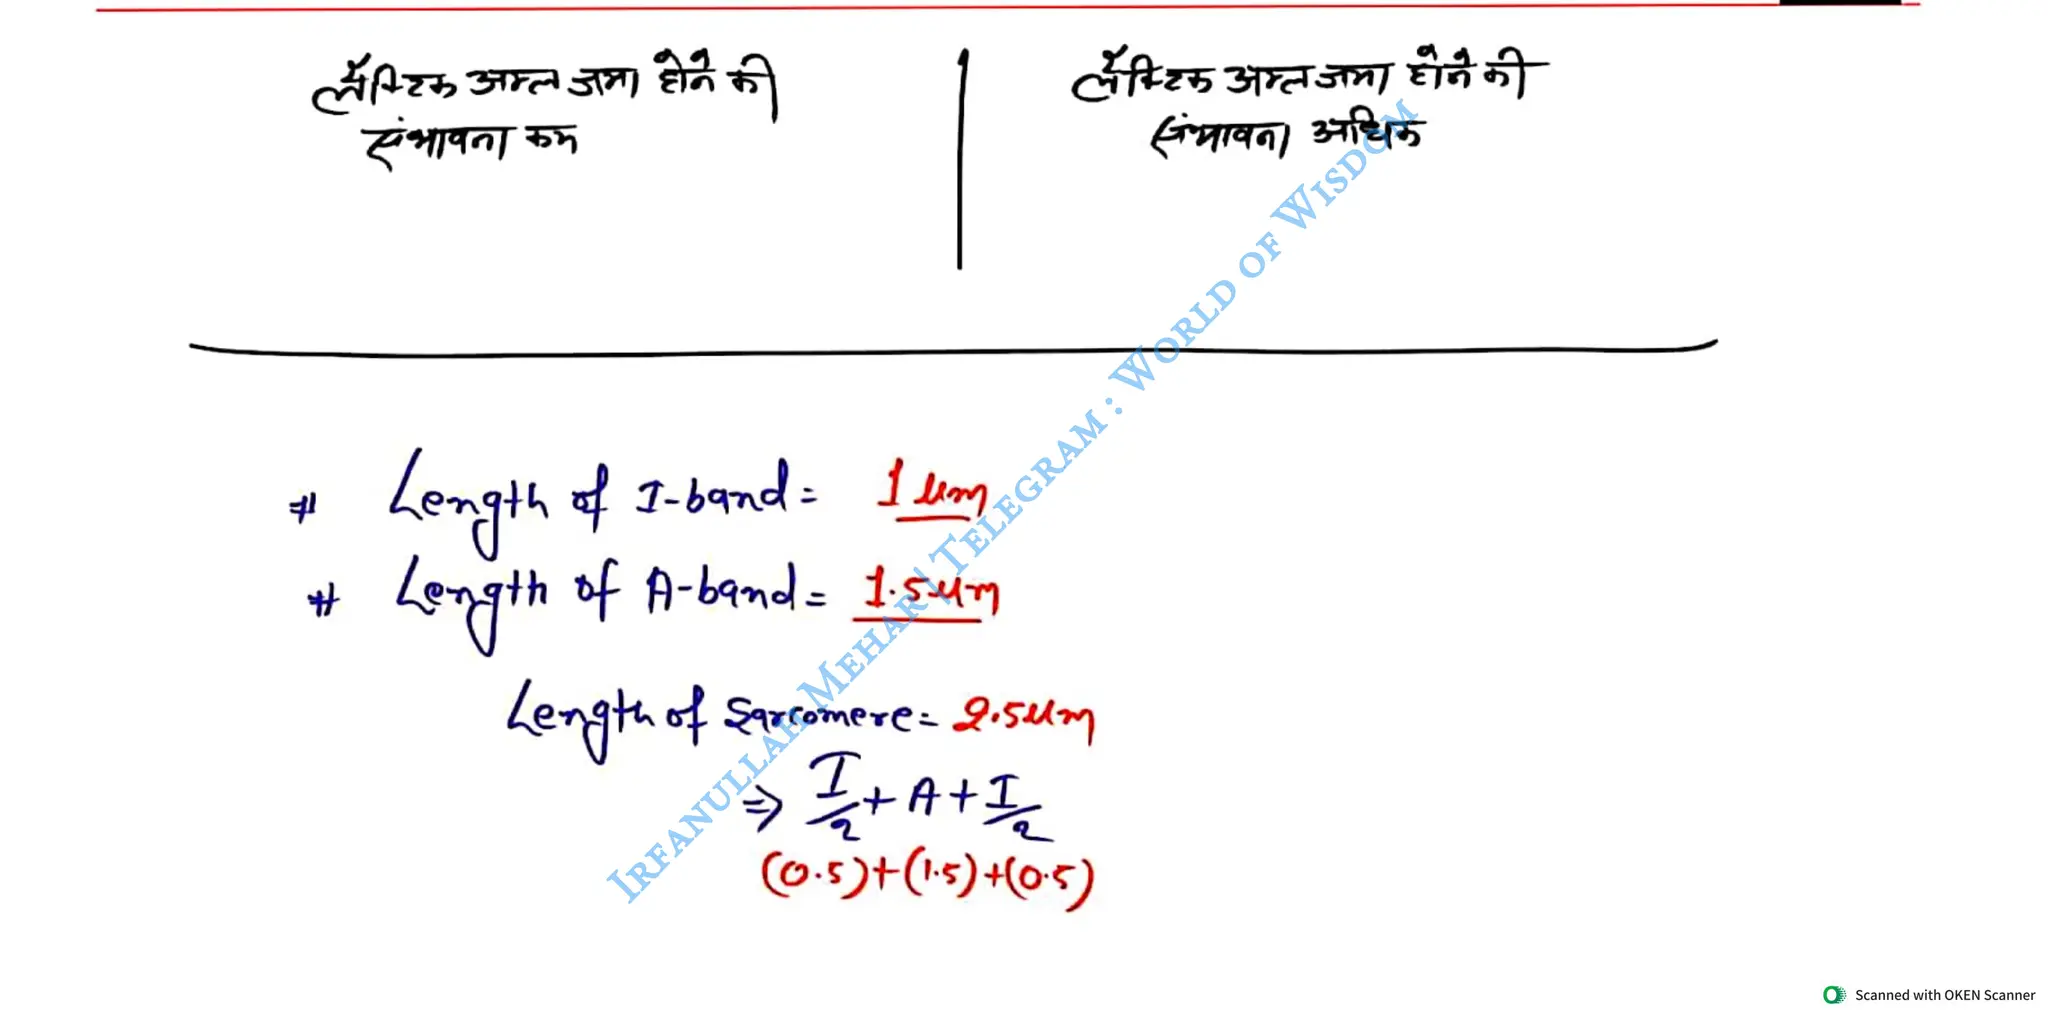 लैक्टिक अम्ल जमा होने की
संभावना कम
लैक्टिक अम्ल जमा होने की
संभावना अधिक
# Length of I-band = 1 μm
# Length of A-band = 1.5 μm
Length of Sarcomere = 2.5 μm
⇒ I/2 + A + I/2
(0.5)+(1.5)+(0.5)
Irfanullah Mehar | Telegram : World of Wisdom
Scanned with OKEN Scanner